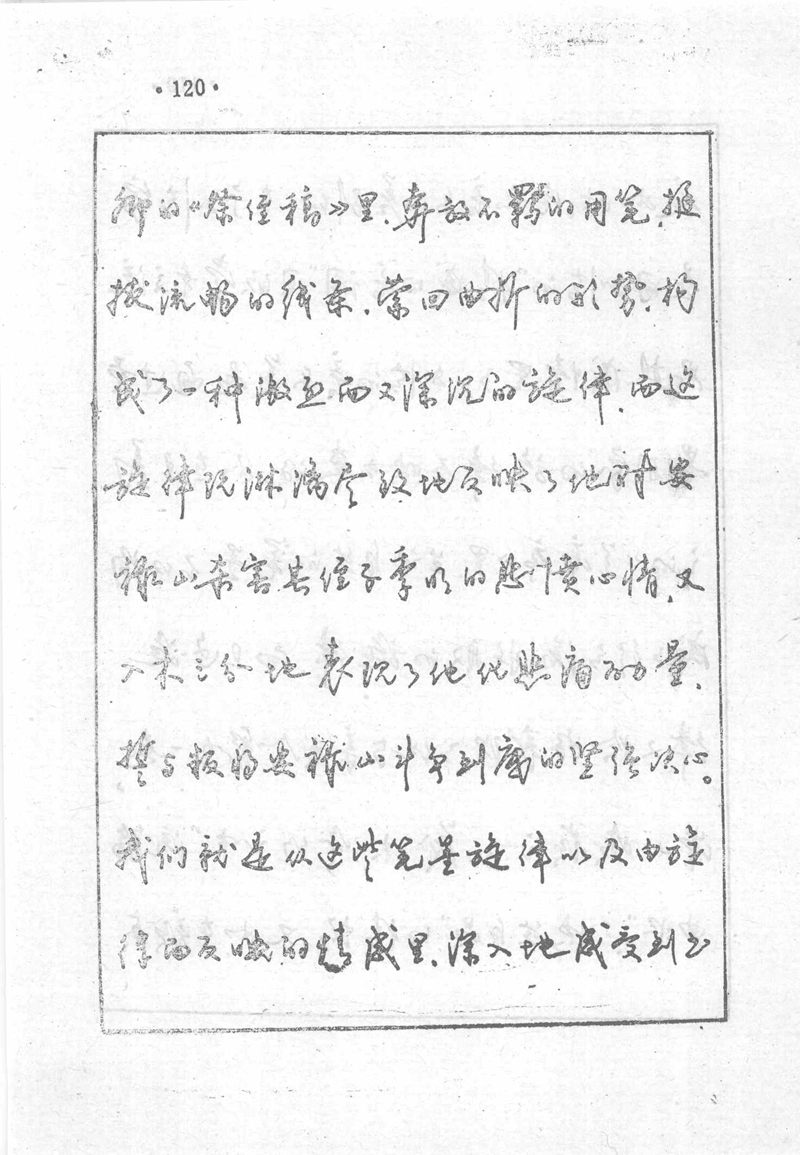 ·120·
卿的《祭侄稿》里，奔放不羁的用笔，挺
拔流畅的线条，萦回曲折的形势，构
成了一种激烈而又深沉的旋律，而这
旋律既淋漓尽致地反映了他对安
禄山杀害其侄子季明的悲愤心情，又
入木三分地表现了他化悲痛为力量，
誓与叛将安禄山斗争到底的坚强决心。
我们就是从这些笔墨旋律以及由旋
律而反映的情感里，深入地感受到书